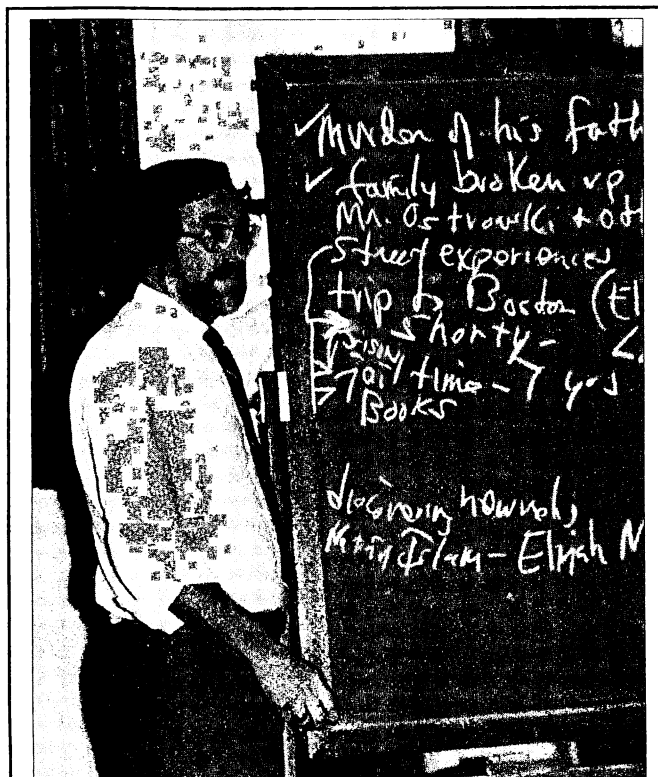 ✓ Murder of his fath
✓ family broken up
Mr. Ostrowski + oth
street experiences
trip to Boston (El
Shorty -
time - 7 yrs
Books
discovering
Islam - Elijah M